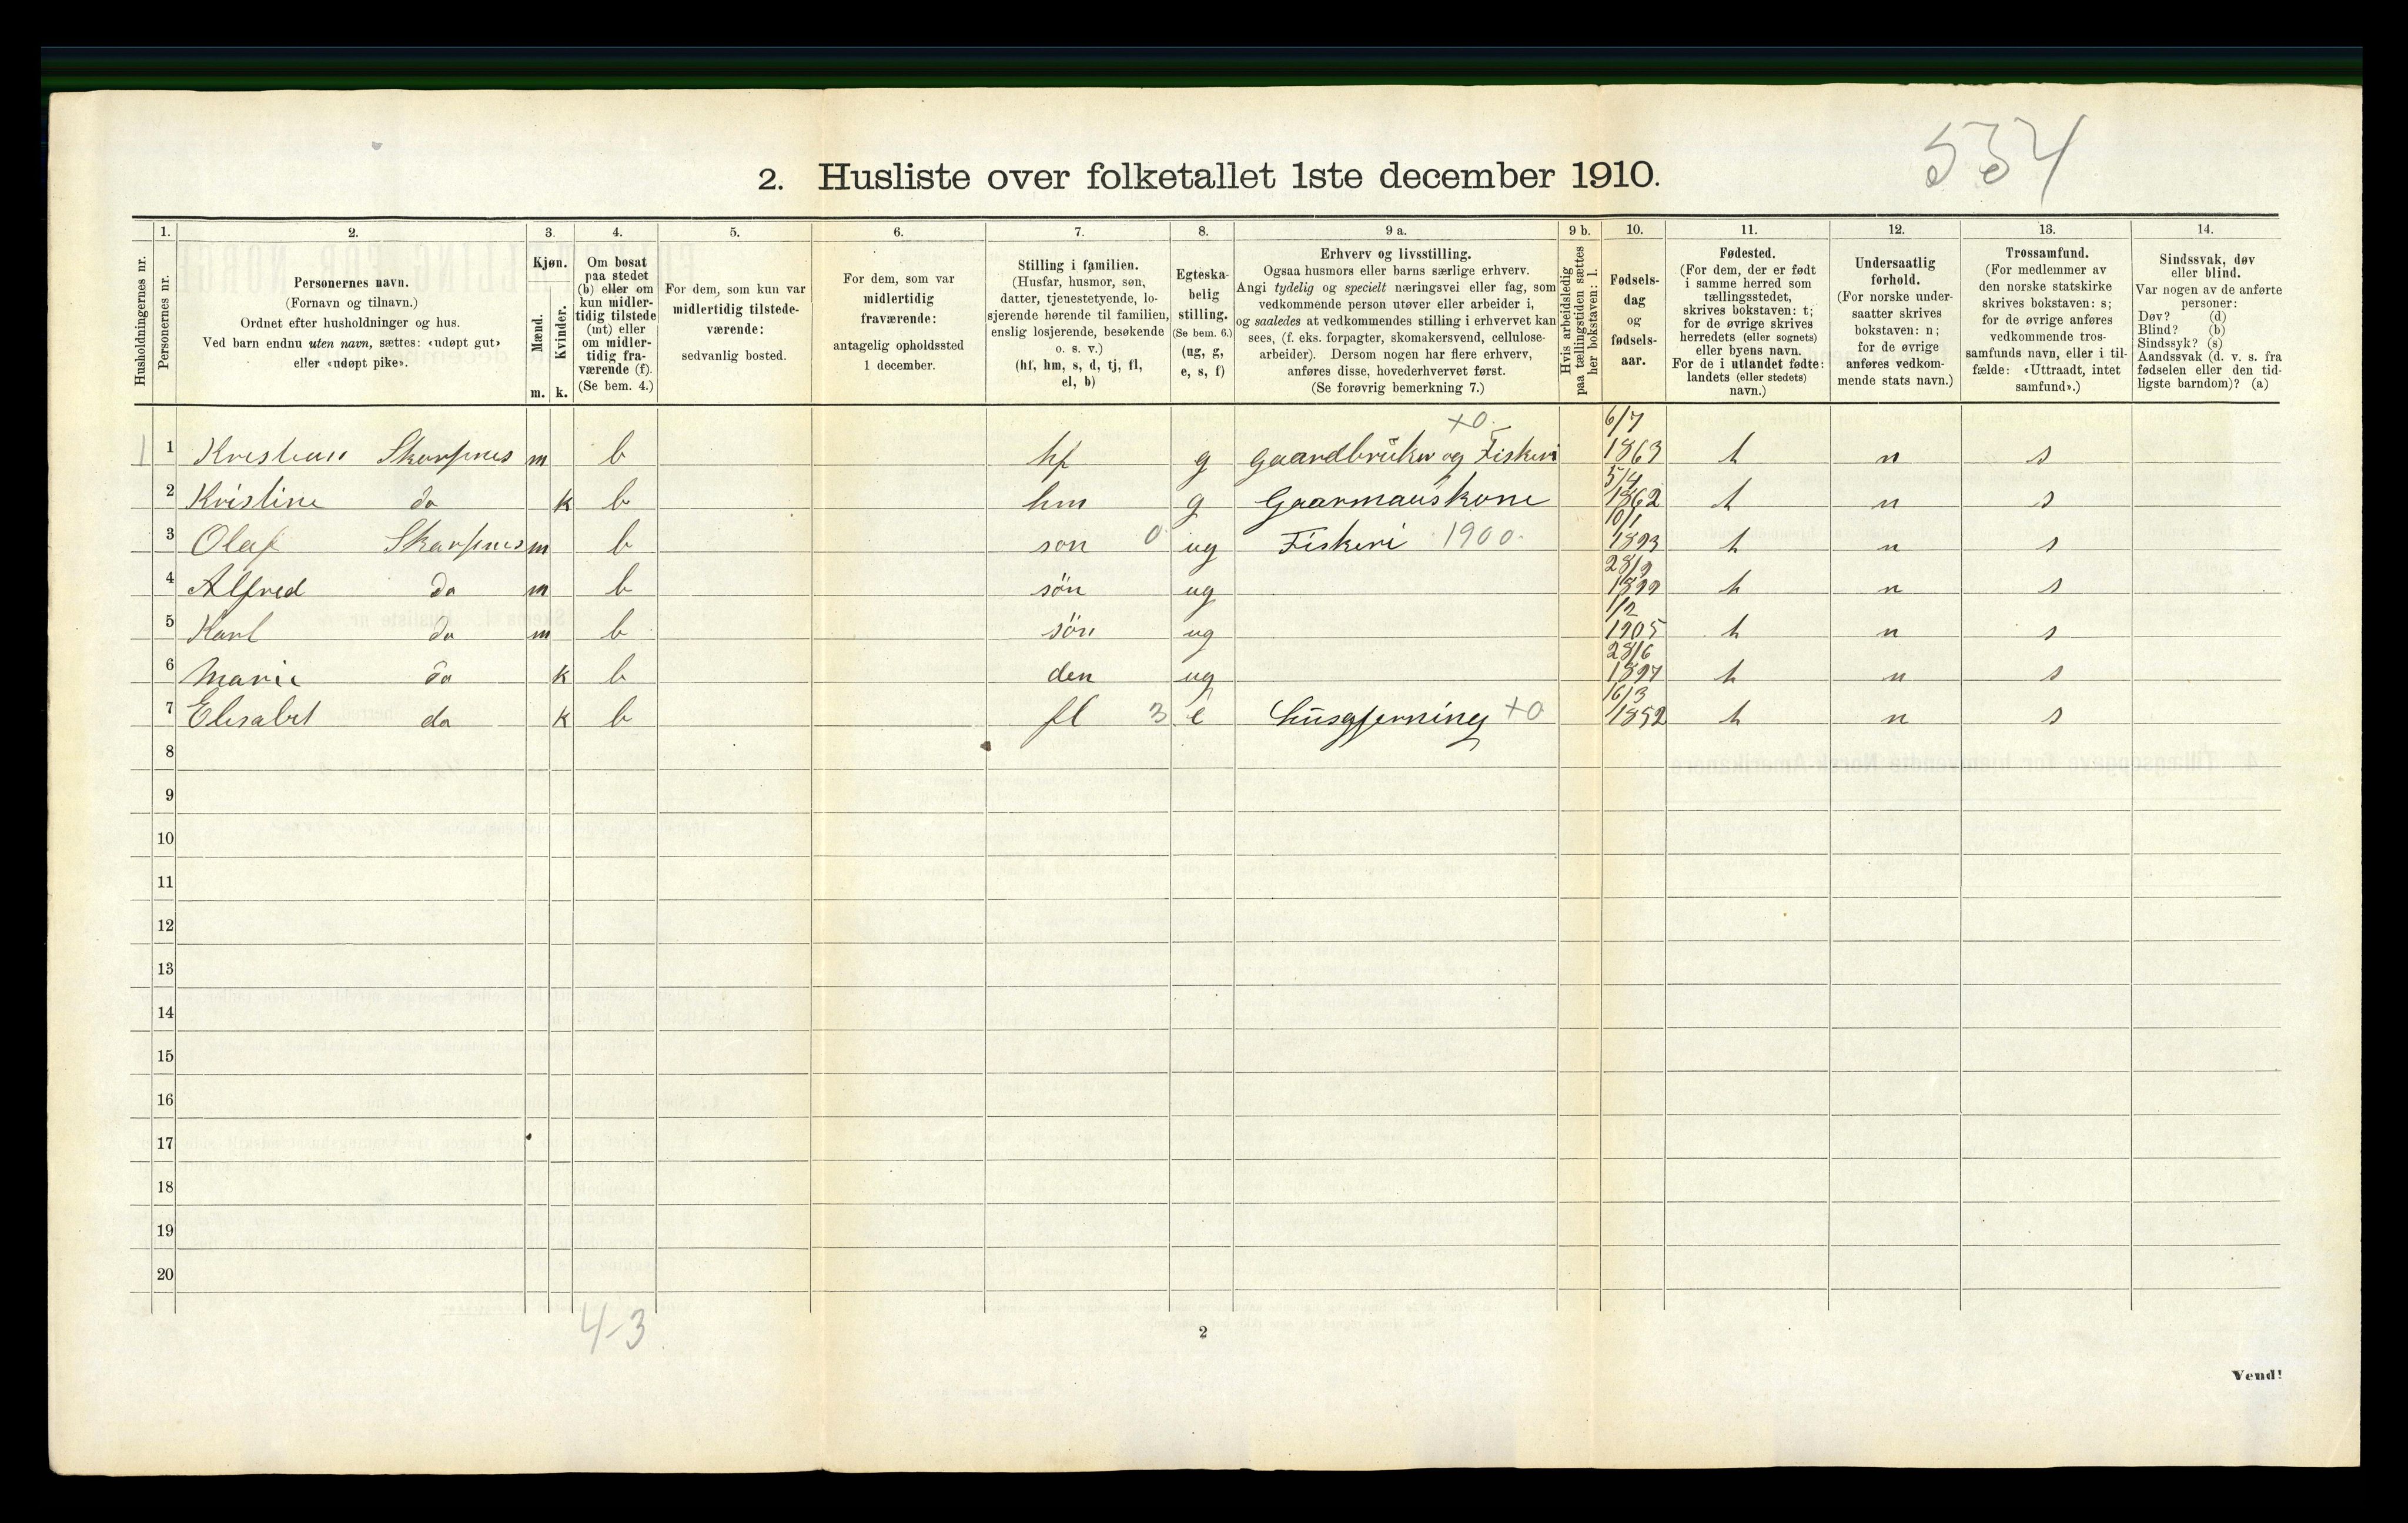 534
2. Husliste over folketallet 1ste december 1910.
Husholdningernes nr.
1.
Personernes nr.
2.
Personernes navn.
(Fornavn og tilnavn.)
Ordnet efter husholdninger og hus.
Ved barn endnu uten navn, sættes: «udøpt gut»
eller «udøpt pike».
3.
Kjøn.
Mænd.
Kvinder.
m.
k.
4.
Om bosat
paa stedet
(b) eller om
kun midler-
tidig tilstede
(mt) eller
om midler-
tidig fra-
værende (f).
(Se bem. 4.)
5.
For dem, som kun var
midlertidig tilstede-
værende:
sedvanlig bosted.
6.
For dem, som var
midlertidig
fraværende:
antagelig opholdssted
1 december.
7.
Stilling i familien.
(Husfar, husmor, søn,
datter, tjenestetyende, lo-
sjerende hørende til familien,
enslig losjerende, besøkende
o. s. v.)
(hf, hm, s, d, tj, fl,
el, b)
8.
Egteska-
belig
stilling.
(Se bem. 6.)
(ug, g,
e, s, f)
9 a.
Erhverv og livsstilling.
Ogsaa husmors eller barns særlige erhverv.
Angi tydelig og specielt næringsvei eller fag, som
vedkommende person utøver eller arbeider i,
og saaledes at vedkommendes stilling i erhvervet kan
sees, (f. eks. forpagter, skomakersvend, cellulose-
arbeider). Dersom nogen har flere erhverv,
anføres disse, hovederhvervet først.
(Se forøvrig bemerkning 7.)
9 b.
Hvis arbeidsledig
paa tællingstiden sættes
her bokstaven: l.
10.
Fødsels-
dag
og
fødsels-
aar.
11.
Fødested.
(For dem, der er født
i samme herred som
tællingsstedet,
skrives bokstaven: t;
for de øvrige skrives
herredets (eller sognets)
eller byens navn.
For de i utlandet fødte:
landets (eller stedets)
navn.)
12.
Undersaatlig
forhold.
(For norske under-
saatter skrives
bokstaven: n;
for de øvrige
anføres vedkom-
mende stats navn.)
13.
Trossamfund.
(For medlemmer av
den norske statskirke
skrives bokstaven: s;
for de øvrige anføres
vedkommende tros-
samfunds navn, eller i til-
fælde: «Uttraadt, intet
samfund».)
14.
Sindssvak, døv
eller blind.
Var nogen av de anførte
personer:
Døv? (d)
Blind? (b)
Sindssyk? (s)
Aandssvak (d. v. s. fra
fødselen eller den tid-
ligste barndom)? (a)
1 1 Kristian Skarpnes m b hf g gaardbruker og Fiskeri +0. 6/7 1863 t n s
2 Kristine do k b hm g Gaarmanskone 5/4 1862 t n s
3 Olaf Skarpnes m b son 0 ug Fiskeri 1900. 10/1 1893 t n s
4 Alfred do m b søn ug 28/9 1899 t n s
5 Karl do m b søn ug 1/2 1905 t n s
6 Marie do k b den ug 28/6 1897 t n s
7 Elisabet do k b fl 3 e husgjerning +0 16/3 1852 t n s
8
9
10
11
12
13
14
15
16
17
18
19
20
4-3
2
Vend!